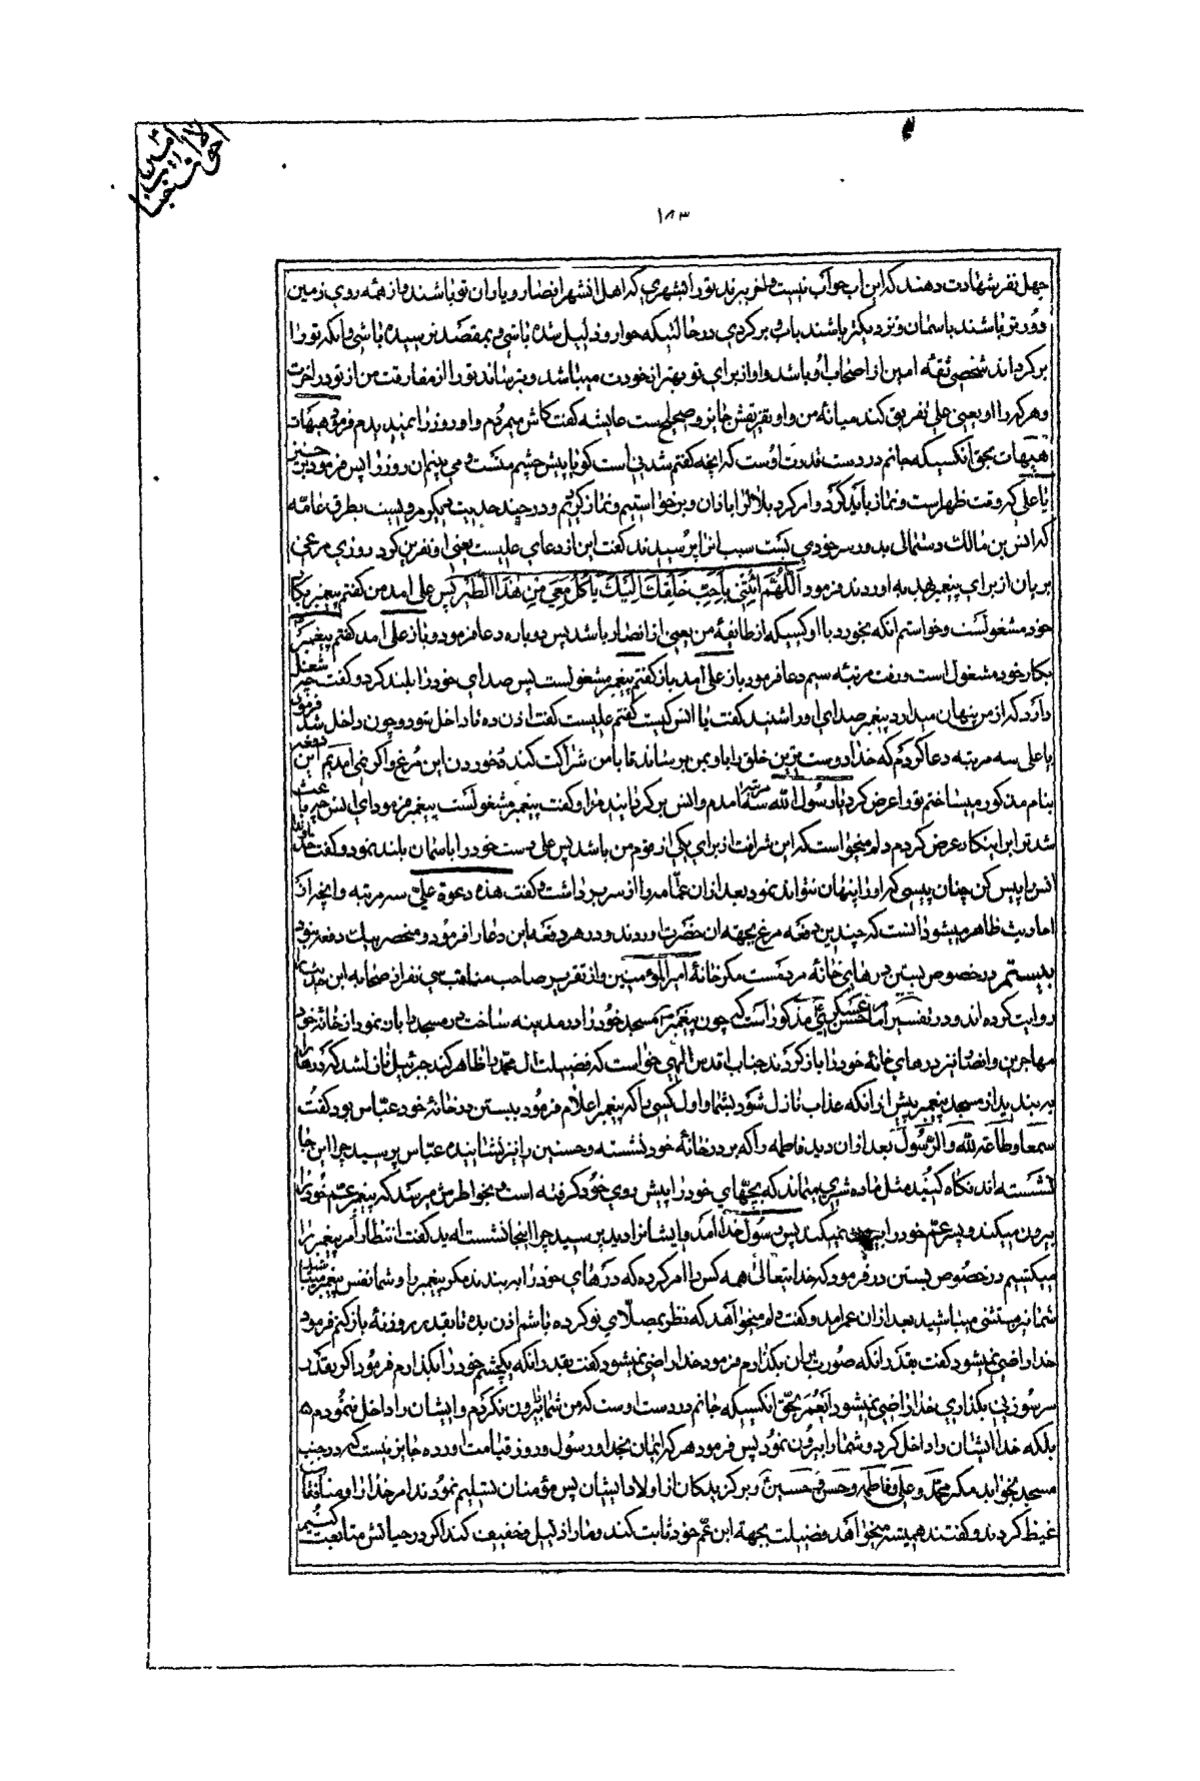 ۱۸۳
چهل نفر شهادت دهند که این آب حوأب نیست و آخر ببرند تو را بشهری که اهل آنشهر انصار و یاران تو باشند و از همه روی زمین
دورتر باشند باسمان و نزدیکتر باشند باب و برکردی در حالتیکه خوار و ذلیل شده باشی و بمقصد نرسیده باشی و آنکه تو را
برکرداند شخصی ثقه امین از اصحاب او باشد و او از برای تو بهتر از خودت میباشد و بترساند تو را از مفارقت من از تو در اخرت
و هر که را او یعنی علی تفریق کند میانه من و او تفریقش جایز و صحیح است عایشه کفت کاش میمردم و اوروز را نمیدیدم فرمود هیهات
هیهات بحق انکسیکه جانم در دست قدرت اوست که انچه کفتم شدنی است کویا پیش چشم منست و می بینم ان روز را پس فرمود برخیز
یا علی که وقت ظهر است و نماز باید کرد و امر کرد بلال را باذان و برخواستیم و نماز کردیم و در چند حدیث دیکر مرویست بطرق عامه
که انس بن مالک دستمالی بدور سر خود می بست سبب انرا پرسیدند کفت این از دعای علیست یعنی او نفرین کرد روزی مرغی
بریان از برای پیغمبر هدیه اوردند فرمود اللهم ائتنی باحب خلقک الیک یاکل معی من هذا الطیر پس علی امد من کفتم پیغمبر بکار
خود مشغولست و خواستم انکه بخورد با او کسیکه از طایفهٔ من یعنی از انصار باشد پس دوباره دعا فرمود و باز علی امد کفتم پیغمبر
بکار خود مشغول است و رفت مرتبه سیم دعا فرمود باز علی امد باز کفتم پیغمبر مشغولست پس صدای خود را بلند کرد و کفت چه شغل
دارد که از من پنهان میدارد پیغمبر صدای او را شنید کفت یا انس کیست کفتم علیست کفت اذن ده تا داخل شود و چون داخل شد فرمود
یا علی سه مرتبه دعا کردم که خدا دوست ترین خلق را باو بمن برساند تا با من شراکت کند در خوردن این مرغ و اکر نمی امدی این دفعه
بنام مذکور میساختم تو را عرض کرد یا رسول الله سه مرتبه امدم و انس برکردانید مرا و کفت پیغمبر مشغولست پیغمبر فرمود ای انس چه باعث
شد ترا باین کار عرض کردم دلم میخواست که این شرافت از برای یکی از قوم من باشد پس علی دست خود را باسمان بلند نمود و کفت خداوندا
انس را پیس کن چنان پیسی که او را پنهان نتواند نمود بعد از ان عمامه را از سر برداشت و کفت هذه دعوة علی سه مرتبه و انچه از
احادیث ظاهر میشود انست که چندین دفعه مرغ بجهه ان حضرت اوردند و در هر دفعه این دعا را فرمود و منحصر بیک دفعه نبود
بیستم در خصوص بستن درهای خانهٔ مردمست مکر خانهٔ امیر المؤمنین و از تقریر صاحب مناقب سی نفر از صحابه این حدیث را
روایت کرده اند و در تفسیر امام حسن عسکری مذکور است که چون پیغمبر مسجد خود را در مدینه ساخت در مسجد را بان نمود از خانه خود
مهاجرین و انصار نیز درهای خانه خود را باز کردند جناب اقدس الهی خواست که فضیلت ال محمد را ظاهر کند جبرئیل نازل شد که درها را
به بندید از مسجد پیغمبر پیش از انکه عذاب نازل شود بشما و اول کسی را که پیغمبر اعلام فرمود ببستن در خانهٔ خود عباس بود کفت
سمعا و طاعة لله و للرسول بعد از ان دید فاطمه را که بر در خانهٔ خود نشسته و حسنین را نیز نشانیده عباس پرسید چرا این جا
نشسته اند نکاه کنید مثل ماده شیری میماند که بچهای خود را پیش روی خود کرفته است و بخواطرش میرسد که پیغمبر عم خود را
بیرون میکند و پسر عم خود را بیرون نمیکند پس رسول خدا امد و ایشانرا دید پرسید چرا اینجا نشسته اید کفت انتظار امر پیغمبر را
میکشیم در خصوص بستن در فرمود که خدایتعالی همه کس را امر کرده که درهای خود را به بندند مکر پیغمبر را و شما نفس پیغمبر میباشید
شما نیز مستثنی میباشید بعد از ان عمر امد و کفت دلم میخواهد که نظر بمصلای تو کرده باشم اذن بده تا بقدر روزنهٔ باز کنم فرمود
خدا راضی نمیشود کفت بقدر انکه صورت بران بکذارم فرمود خدا راضی نمیشود کفت بقدر انکه یکچشم خود را بکذارم فرمود اکر بقدر
سر سوزنی بکذاری خدا راضی نمیشود ایعمر بحق انکسیکه جانم در دست اوست که من شما را بیرون نکردم و ایشان را داخل ننمودم
بلکه خدا ایشان را داخل کرد و شما را بیرون نمود پس فرمود هر که ایمان بخدا و رسول و روز قیامت اورده جایز نیست که در جنب
مسجد بخوابد مکر محمد و علی و فاطمه و حسن و حسین و برکزیدکان از اولاد ایشان پس مؤمنان تسلیم نمودند امر خدا را و منافقان
غیظ کردند و کفتند همیشه میخواهد فضیلت بجهة ابن عم خود ثابت کند و ما را ذلیل و خفیف کند اکر در حیاتش متابعت کنیم